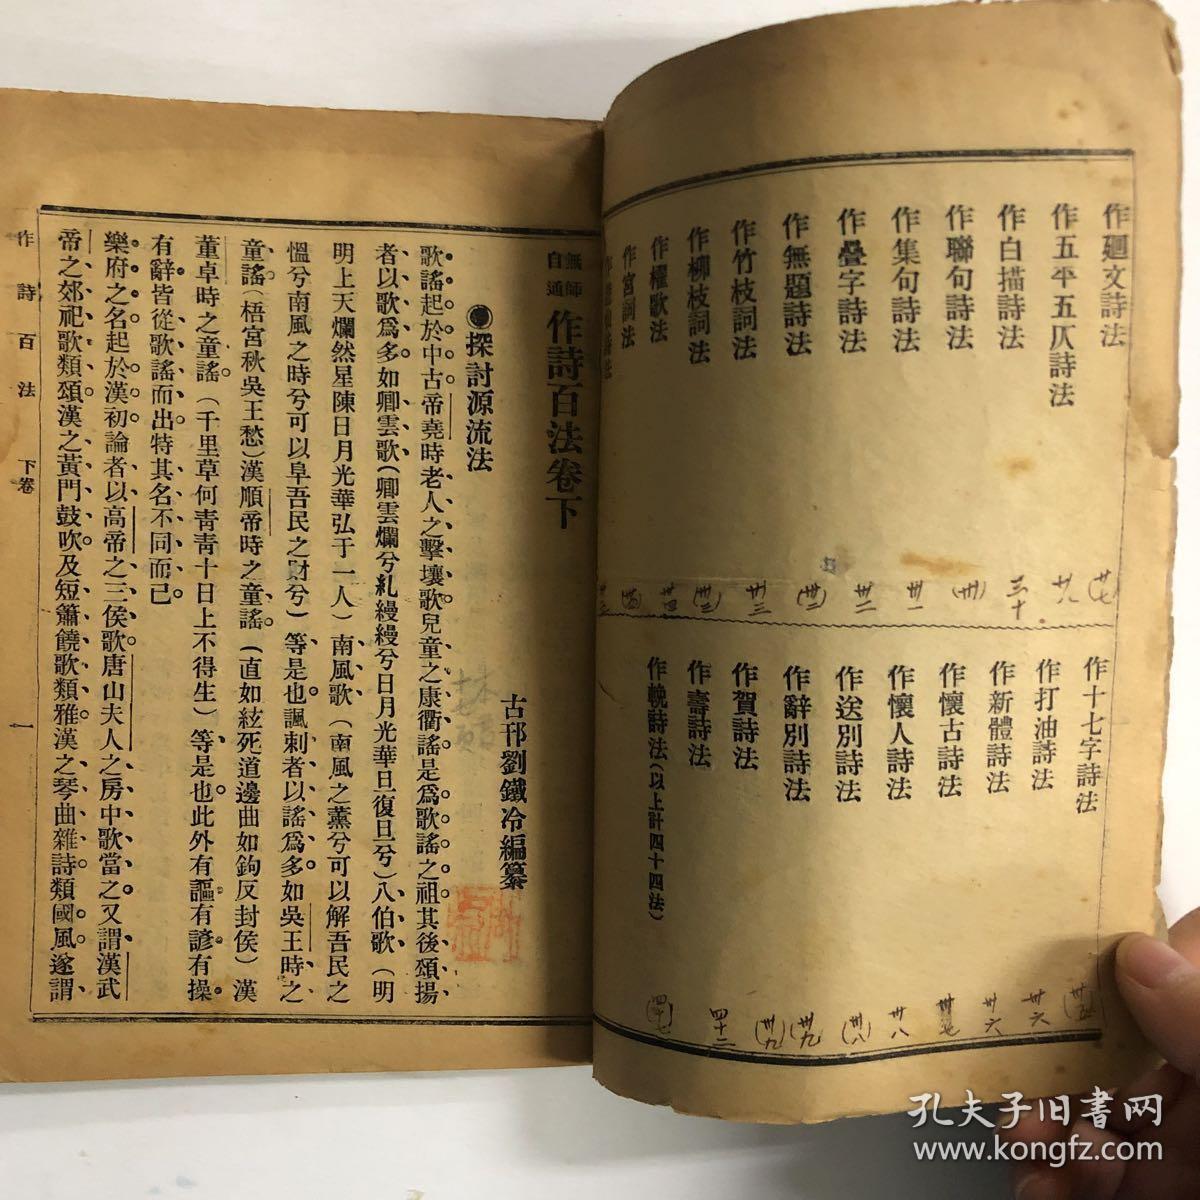 作廻文詩法
作五平五仄詩法
作白描詩法
作聯句詩法
作集句詩法
作疊字詩法
作無題詩法
作竹枝詞法
作柳枝詞法
作櫂歌法
作宮詞法
廿七
廿九
三十
(卅)
卅一
卅二
(卅二)
卅三
(卅三)
作十七字詩法
作打油詩法
作新體詩法
作懷古詩法
作懷人詩法
作送別詩法
作辭別詩法
作賀詩法
作壽詩法
作輓詩法(以上計四十四法)
(卅五)
卅六
卅六
卅七
卅八
(卅八)
卅九
(卅九)
四十二
無師自通
作詩百法卷下
古邗劉鐵冷編纂
探討源流法
歌謠起於中古。帝堯時老人之擊壤歌兒童之康衢謠是爲歌謠之祖。其後頌揚
者以歌爲多。如卿雲歌(卿雲爛兮糺縵縵兮日月光華旦復旦兮)八伯歌(明
明上天爛然星陳日月光華弘于一人)南風歌(南風之薰兮可以解吾民之
慍兮南風之時兮可以阜吾民之財兮)等是也。諷刺者以謠爲多。如吳王時之
童謠(梧宮秋吳王愁)漢順帝時之童謠。(直如絃死道邊曲如鉤反封侯)漢
董卓時之童謠。(千里草何靑靑十日上不得生)等是也。此外有謳有諺有操
有辭。皆從歌謠而出。特其名不同而已
樂府之名。起於漢初。論者以高帝之三侯歌。唐山夫人之房中歌當之。又謂漢武
帝之郊祀歌類頌。漢之黃門鼓吹及短簫饒歌類雅。漢之琴曲雜詩類國風。遂謂
作詩百法
下卷
一
孔夫子旧書网
www.kongfz.com